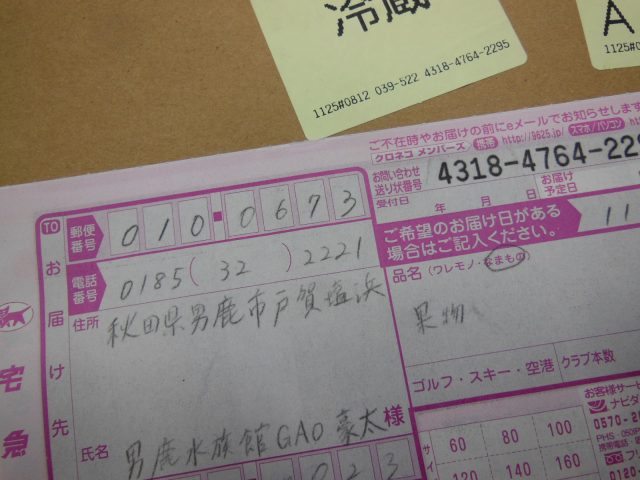 冷蔵
1125#0812 039-522 4318-4764-2295
A
1125#
ご不在時やお届けの前にeメールでお知らせします
クロネコ メンバーズ 携帯 http://9625.jp/ スマホ/パソコン
お問い合わせ
送り状番号 4318-4764-229
受付日 年 月 日 お届け
予定日
TO
お届け先
郵便
番号 010-0673
ご希望のお届け日がある
場合はご記入ください。 11
電話
番号 0185(32)2221
品名(ワレモノ・なまもの
住所 秋田県男鹿市戸賀塩浜
果物
宅急
ゴルフ・スキー・空港 クラブ本数
氏名 男鹿水族館GAO豪太様
023
サイ
60 80 100
120 140 160
お客様サー
ナビダ
0570-2
PHS・050
携帯電話
フリ
0120